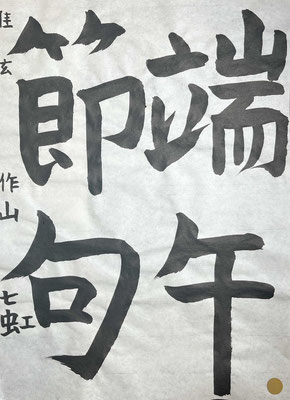 端午
節句
佳玄 作山 七虹